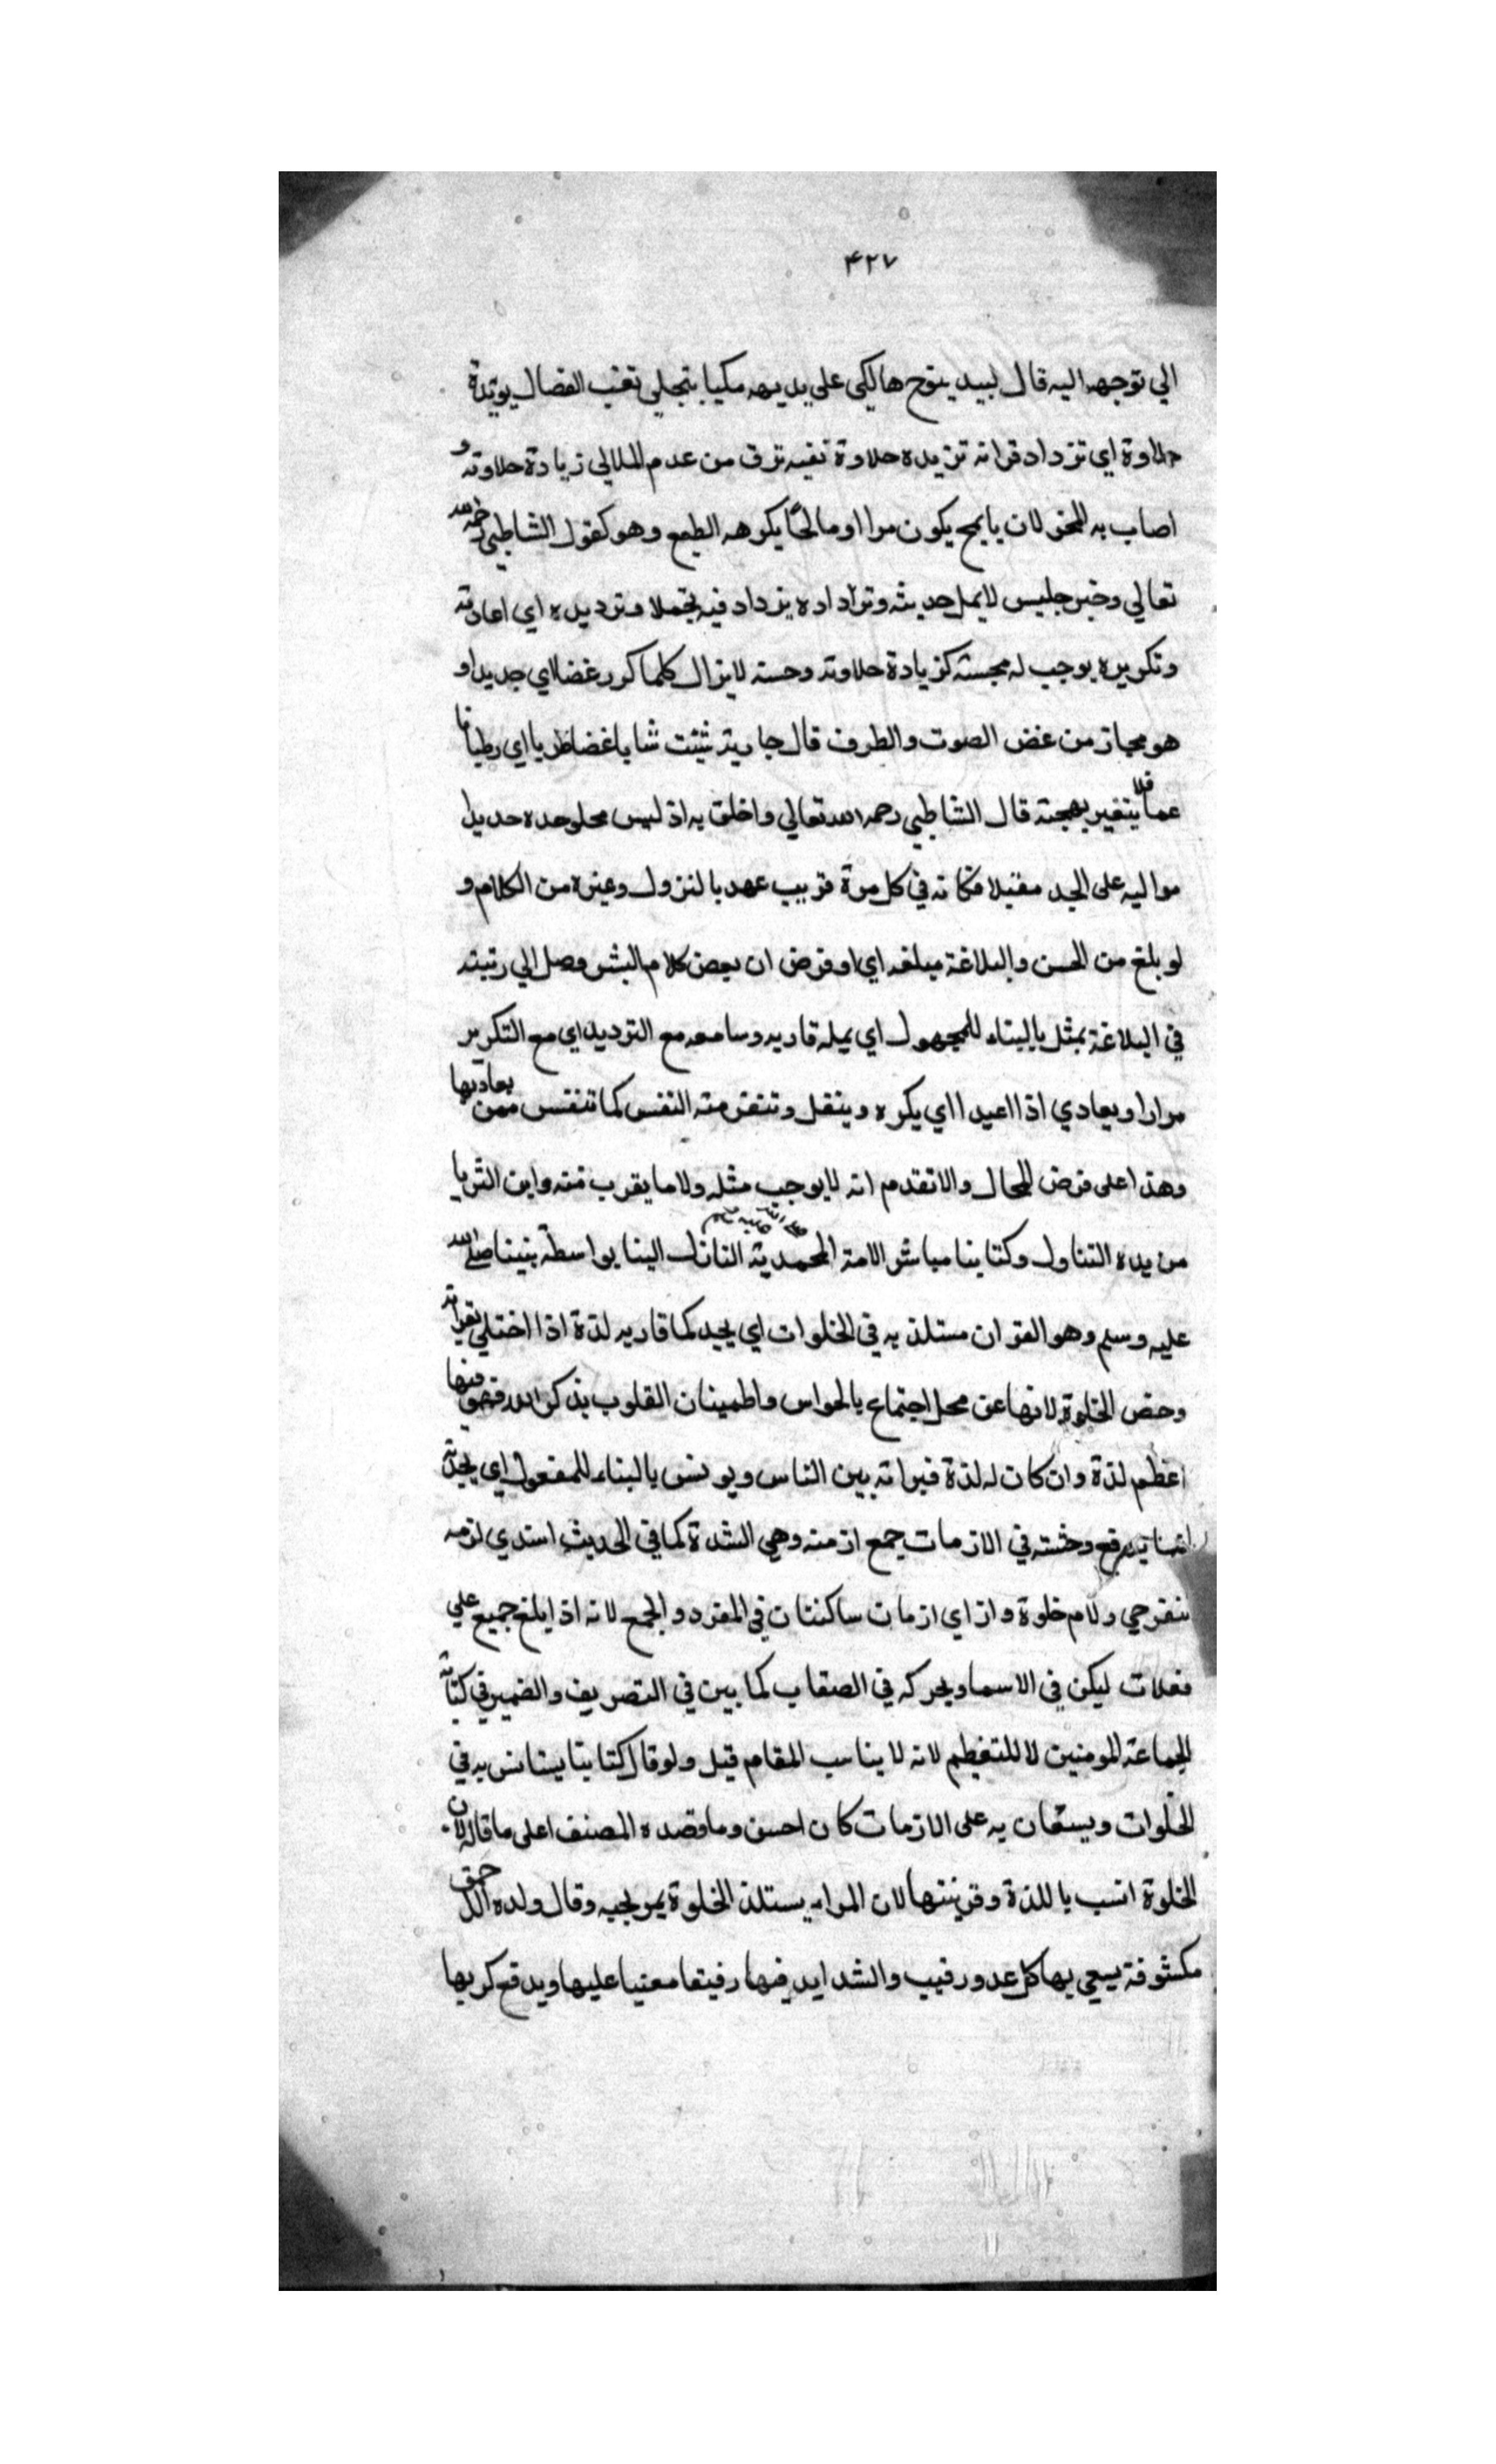 ۴۲۷
الي توجهه اليه قال لبيد ينوح هالكي على يديهه مكبا يتجلي نقب الفصال يؤيده
حلاوة اي تزداد قرانه تزيده حلاوة نفيه ترق من عدم الملالي زيادة حلاوته و
اصاب به للمخر لان يايمح يكون مرا او مالحًا يكرهه الطبع وهو كقول الشاطبي رحمه الله
تعالي وخير جليس لا يمل حديثه وترداده يزداد فيه تجملا وترديده اي اعادته
وتكريره يوجب له محبسته كزيادة حلاوته وحسنه لا يزال كلما كرر غضا اي جديدا و
هو مجاز من غض الصوت والطرف قال جارية شبت شبابا غضا طريا اي رطبا فا
عما فلا يتغير بهجته قال الشاطبي رحمه الله تعالي واخلق به اذ ليس يخلو جده جديدا
مواليه على الجد مقبلا فكانه في كل مرة قريب عهد بالنزول وغيره من الكلام و
لو بلغ من الحسن والبلاغة مبلغه اي او فرض ان بعض كلام البشر وصل الي رتبته
في البلاغة يمثل بالبناء للمجهول اي يمله قاريه وسامعه مع الترديد اي مع التكرير
مرارا ويعادي اذا اعيد ا اي يكره وينقل وتنفر منه النفس كما تنفس ممن يعاديها
وهذا على فرض المحال والا تقدم انه لا يوجب مثله ولا ما يقرب منه واين الثريا
من يده التناول وكتابنا مباشر الامة المحمدية صلى الله عليه وسلم النازل الينا بواسطة نبينا صلى الله
عليه وسلم وهو القران مستلذ به في الخلوات اي يجد كما قاريه لذة اذا اختلي بقراته
وخص الخلوة لانها عن محل اجتماع بالحواس واطمينان القلوب بذكر الله فهو فيها
اعظم لذة وان كان له لذة قيراته بين الناس ويونس بالبناء للمفعول اي يجد به
يرفع وحشته في الازمات جمع ازمنه وهي الشدة كما في الحديث استدي لزمه
تنفرجي ولام خلوة وازاي ازمات ساكنتان في المفرد والجمع لانه اذا يلغ جميع علي
فعلات ليكن في الاسما ويحركه في الصقاب كما بين في التصريف والضمير في كتابه
الجماعة المومنين لا للتعظيم لانه لا يناسب المقام قيل ولو قال كتابنا يستانس به في
الخلوات ويستعان به على الازمات كان احسن وما قصده المصنف اعلى ما قاله لان
الخلوة انسب باللذة وقرينتها لان المراء يستلذ الخلوة بمن يحبه وقال ولده الك حق
مكشوفة يسعي بها كل عدو رقيب والشدايد فيها رفيقا معنيا عليها ويدفع كربها